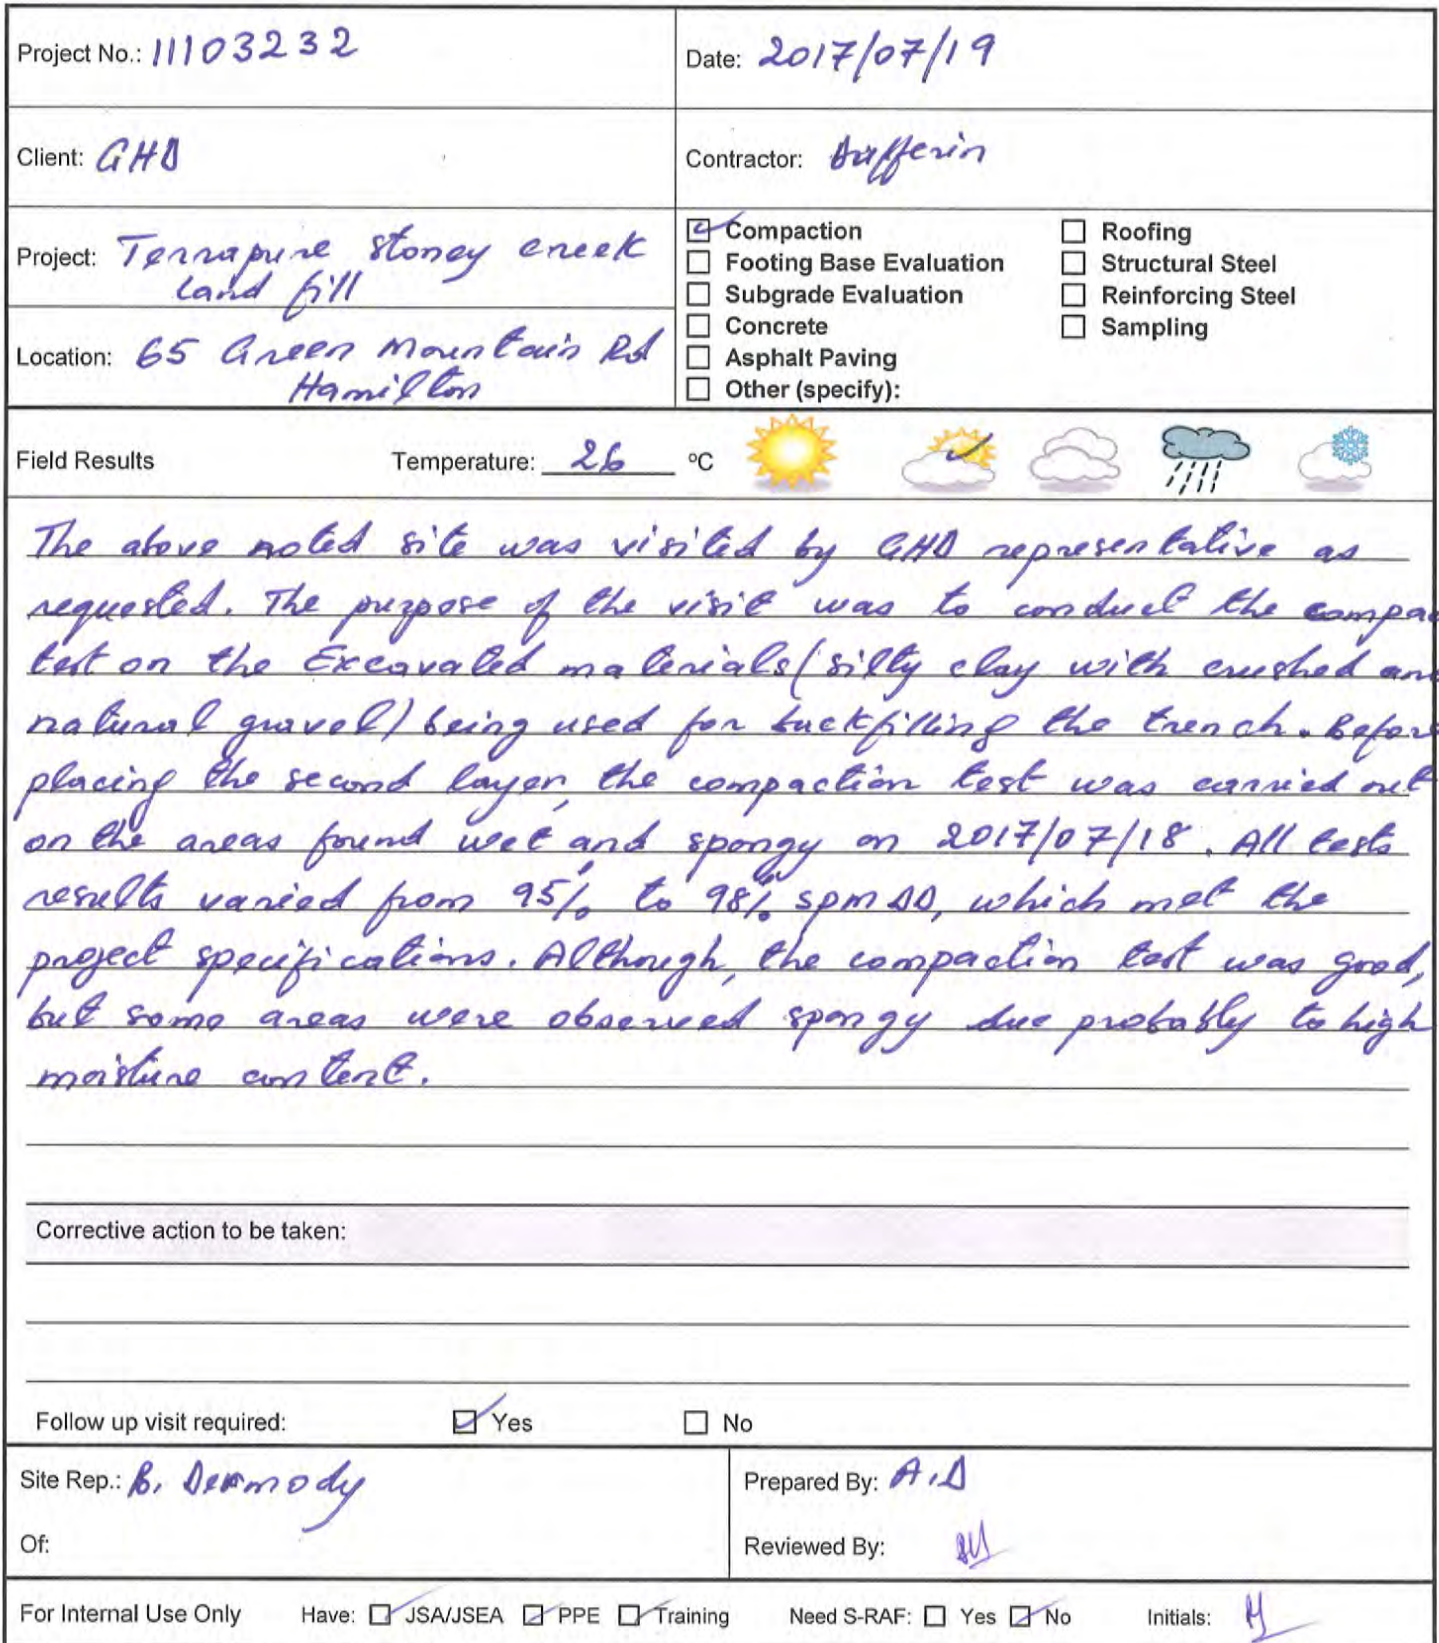 Project No.: 11103232
Date: 2017/07/19
Client: GHD
Contractor: Dufferin
Project: Terrapure Stoney creek
Land fill
Location: 65 Green Mountain Rd
Hamilton
Compaction
Footing Base Evaluation
Subgrade Evaluation
Concrete
Asphalt Paving
Other (specify):
Roofing
Structural Steel
Reinforcing Steel
Sampling
Field Results Temperature: 26 ºC
The above noted site was visited by GHD representative as
requested. The purpose of the visit was to conduct the compac
test on the Excavated materials (silty clay with crushed and
natural gravel) being used for backfilling the trench. Before
placing the second layer, the compaction test was carried out
on the areas found wet and spongy on 2017/07/18. All tests
results varied from 95% to 98% SPMDD, which met the
project specifications. Although, the compaction test was good,
but some areas were observed spongy due probably to high
moisture content.
Corrective action to be taken:
Follow up visit required: Yes No
Site Rep.: B. Dermody
Of:
Prepared By: A.D
Reviewed By:
For Internal Use Only Have: JSA/JSEA PPE Training Need S-RAF: Yes No Initials: